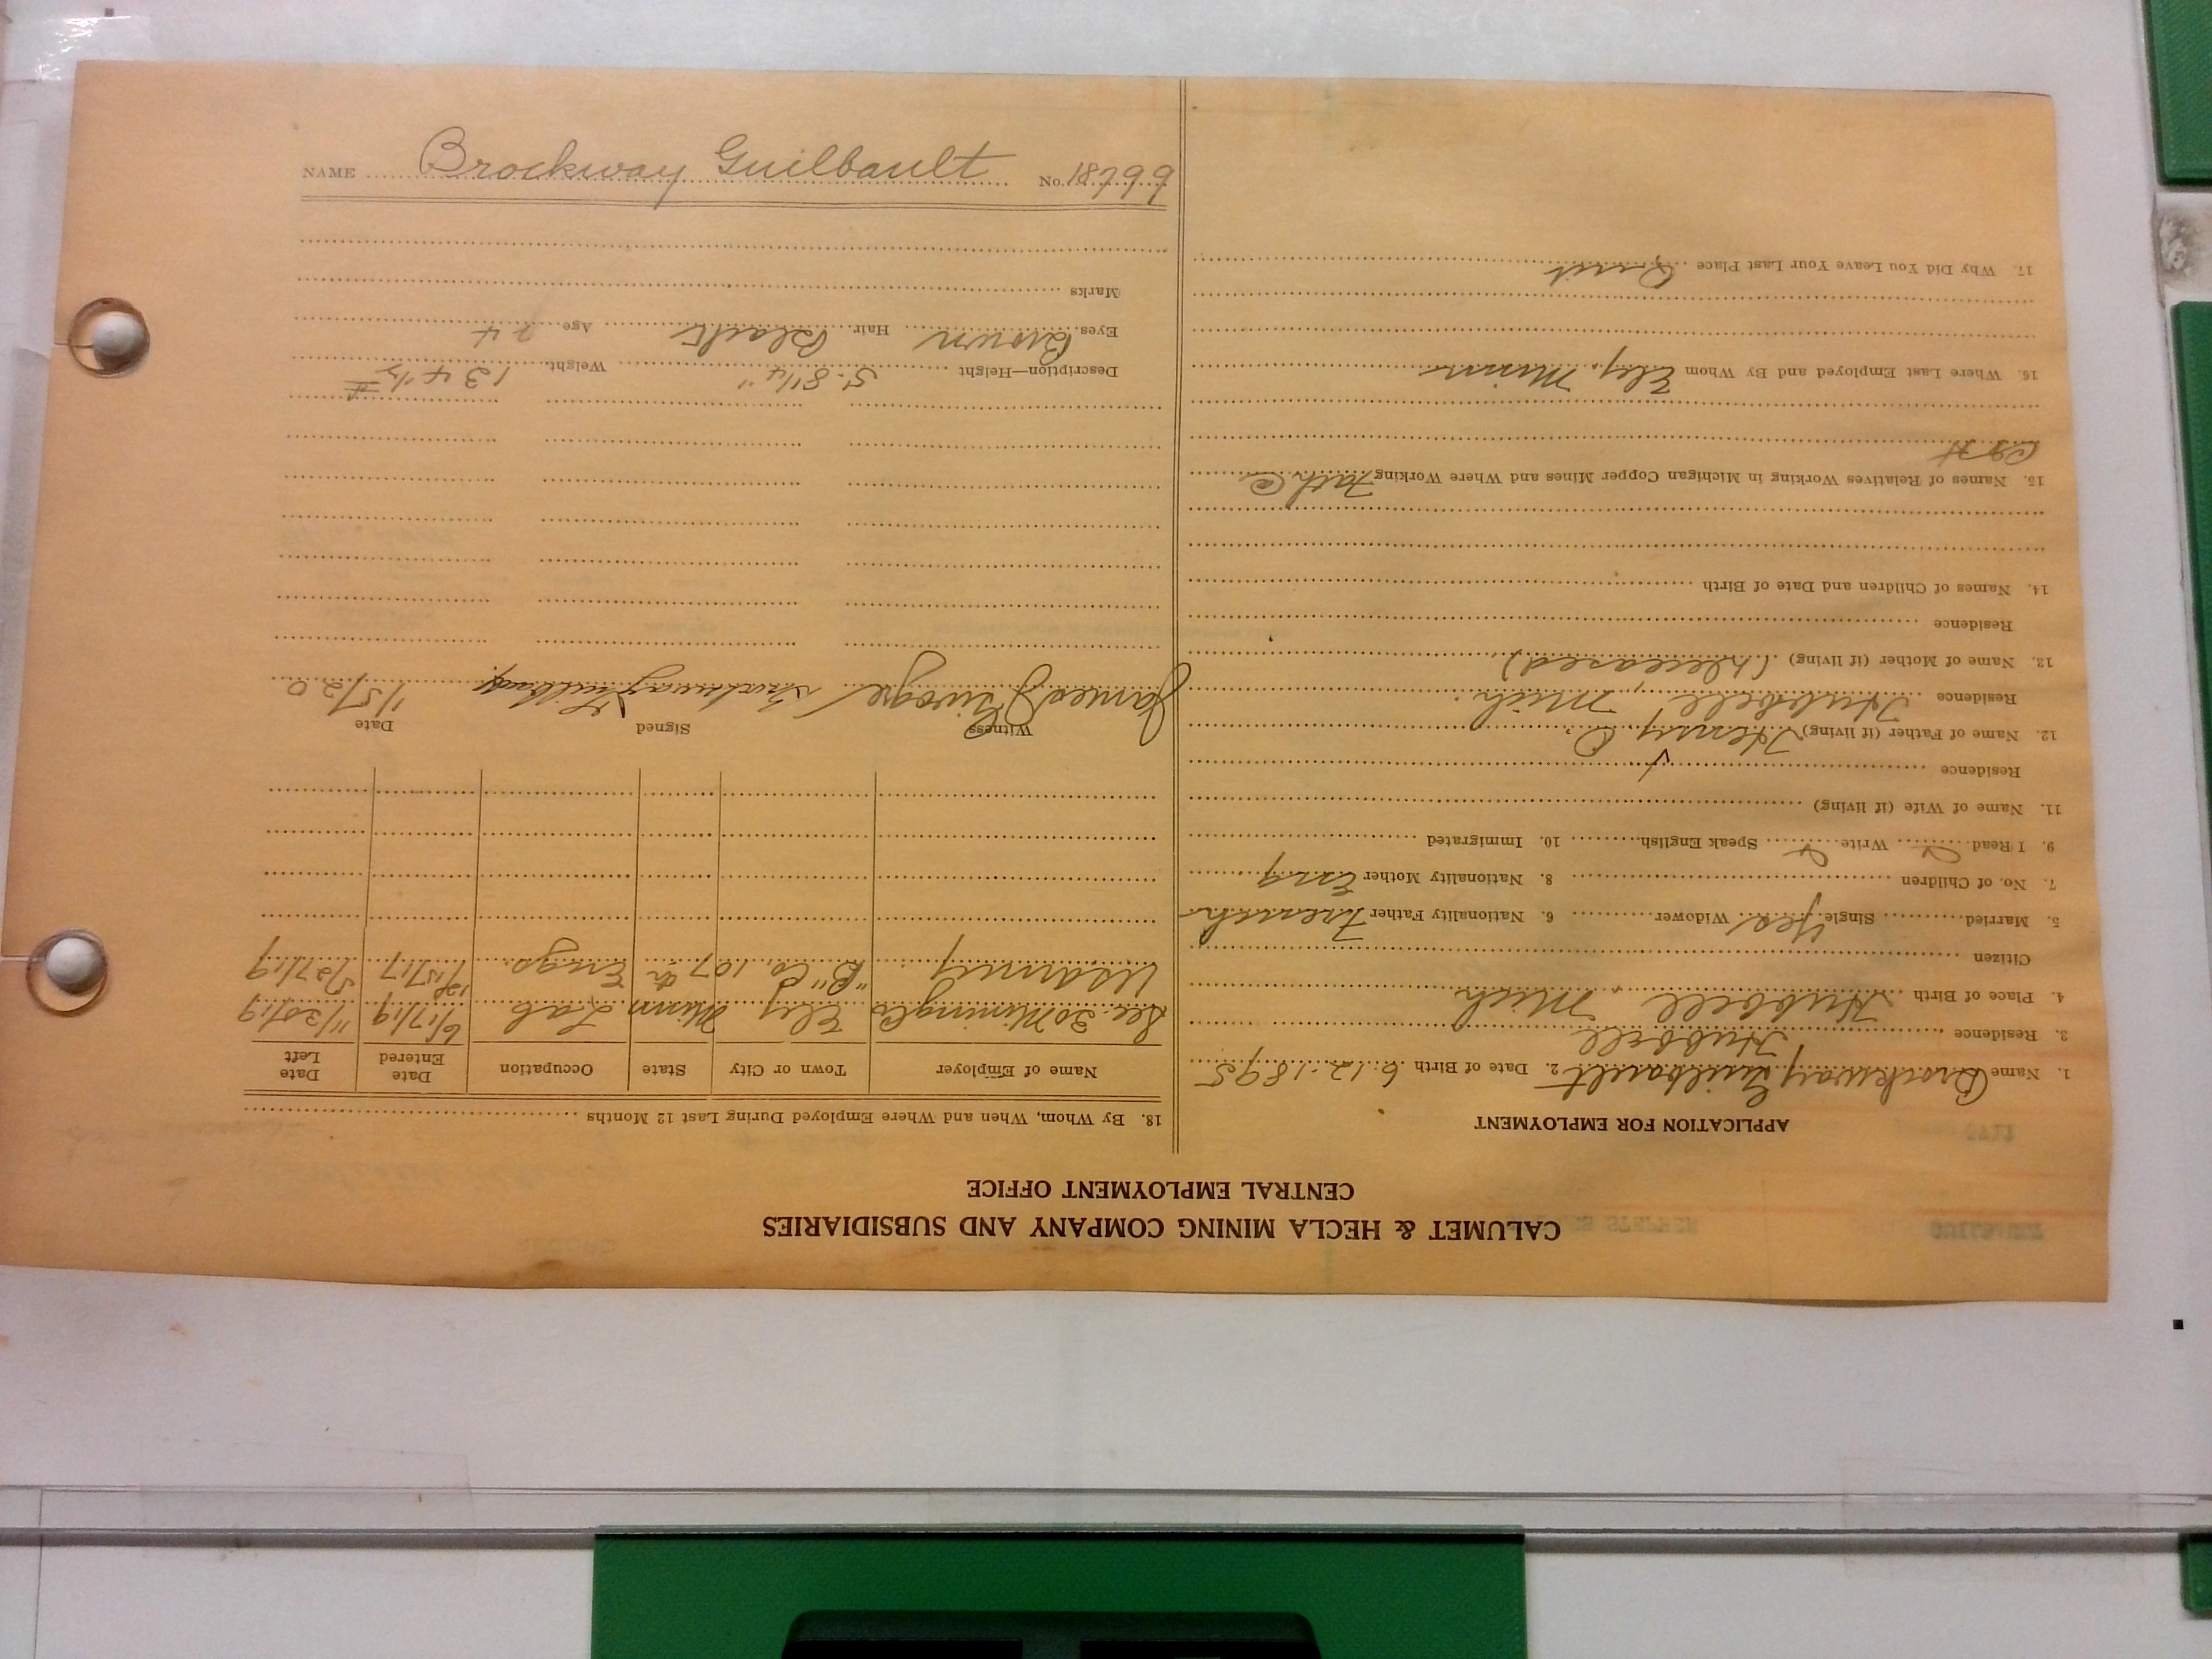 CALUMET & HECLA MINING COMPANY AND SUBSIDIARIES
CENTRAL EMPLOYMENT OFFICE
APPLICATION FOR EMPLOYMENT
1. Name Brockway Guilbault 2. Date of Birth 6-12-1895
3. Residence Hubbell
4. Place of Birth Hubbell Mich
Citizen
5. Married Single Yes Widower 6. Nationality Father French
7. No. of Children 8. Nationality Mother Eng
9. I Read Write Speak English 10. Immigrated
11. Name of Wife (if living)
Residence
12. Name of Father (if living) Henry
Residence Hubbell, Mich.
13. Name of Mother (if living) (Deceased)
Residence
14. Names of Children and Date of Birth
15. Names of Relatives Working in Michigan Copper Mines and Where Working Fath @
C & H
16. Where Last Employed and By Whom Ely, Minn
17. Why Did You Leave Your Last Place Quit
18. By Whom, When and Where Employed During Last 12 Months
Name of Employer Town or City State Occupation Date Entered Date Left
Sec. 30 Mining Co Ely Minn Lab. 6/17/19 11/20/19
US Army "B" Co. 107th Engs. 5/27/19
Witness Signed Date
James Brockway Guilbault 1/5/20
Description—Height 5-8 1/4" Weight 134 1/2 #
Eyes Brown Hair Black Age 24
Marks
NAME Brockway Guilbault No. 18799